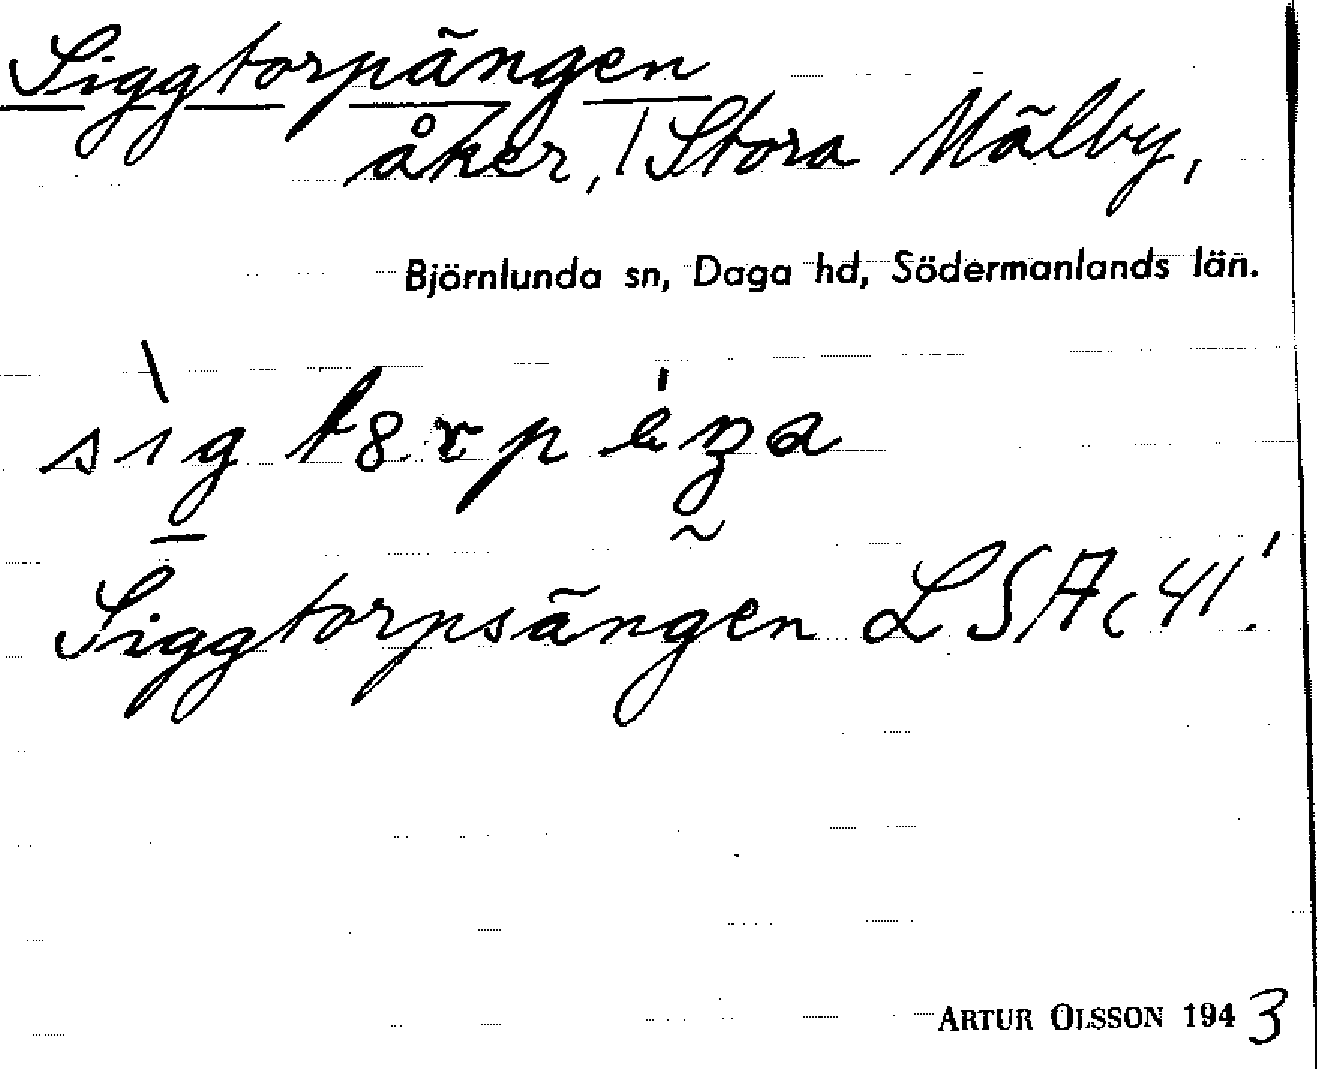 Siggtorpängen
åker, Stora Mälby,
Björnlunda sn, Daga hd, Södermanlands län.
sìgtȣrpéŋa
Siggtorpsängen LSA c 41!
ARTUR OLSSON 1943